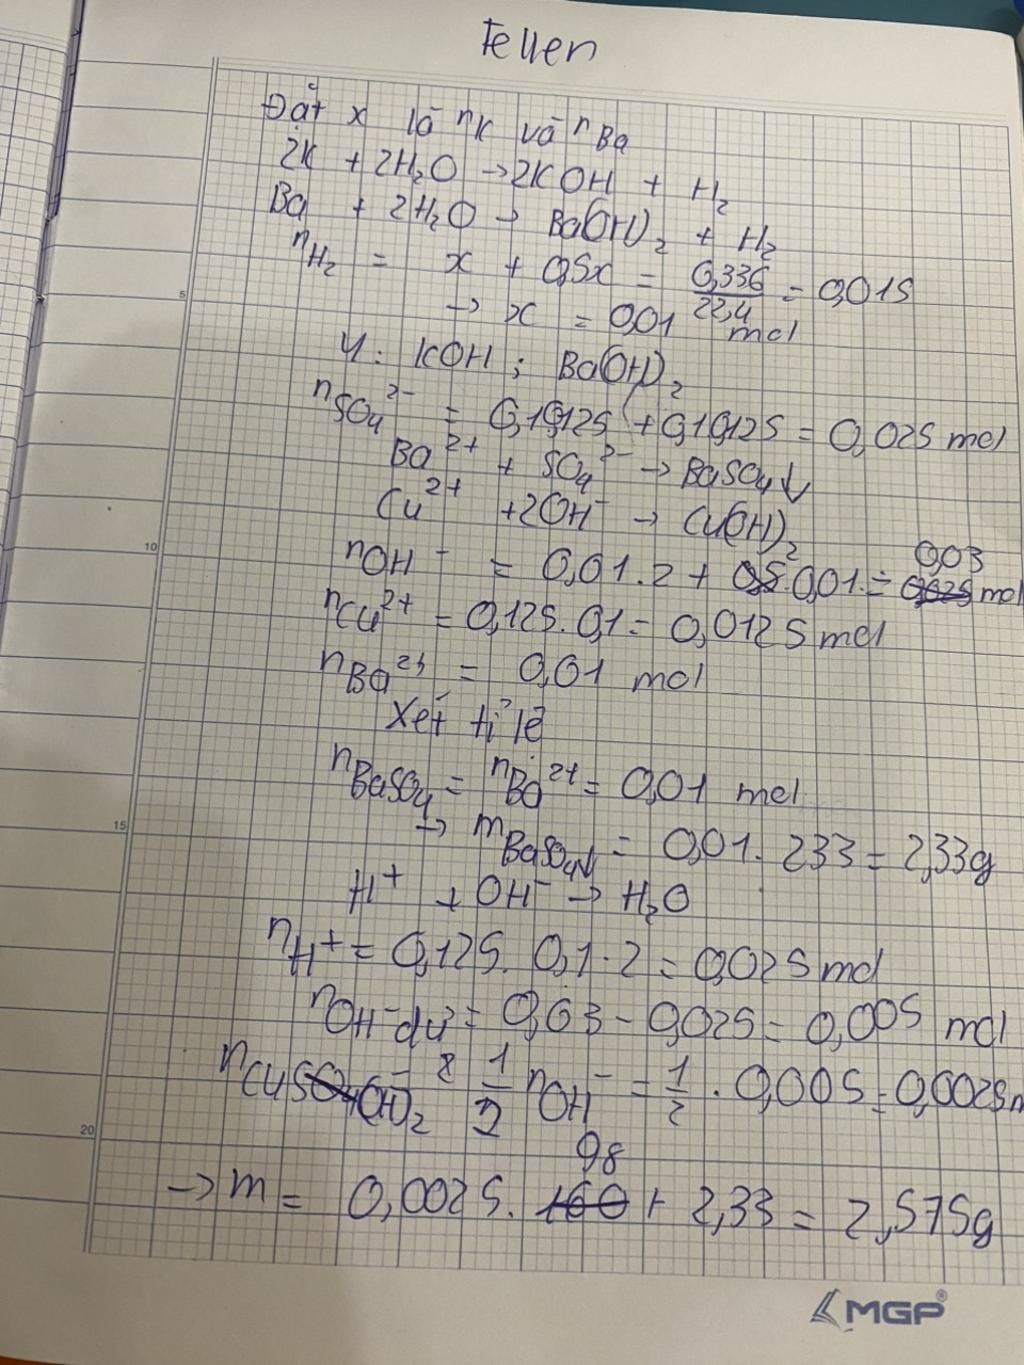 Fellen
Đặt x là nK và nBa
2K + 2H₂O → 2KOH + H₂
Ba + 2H₂O → Ba(OH)₂ + H₂
nH₂ = x + 0,5x = 0,336/22,4 = 0,015
→ x = 0,01 mol
Y: KOH ; Ba(OH)₂
nSO₄²⁻ = 0,1.0,125 + 0,1.0,125 = 0,025 mol
Ba²⁺ + SO₄²⁻ → BaSO₄↓
Cu²⁺ + 2OH⁻ → Cu(OH)₂
0,03
nOH⁻ = 0,01.2 + 0,01 = mol
nCu²⁺ = 0,125.0,1 = 0,0125 mol
nBa²⁺ = 0,01 mol
Xét tỉ lệ
nBaSO₄ = nBa²⁺ = 0,01 mol
→ mBaSO₄↓ = 0,01. 233 = 2,33g
H⁺ + OH⁻ → H₂O
nH⁺ = 0,125. 0,1.2 = 0,025 mol
nOH⁻ dư = 0,03 - 0,025 = 0,005 mol
nCu(OH)₂ = 1/2 nOH⁻ = 1/2 . 0,005 = 0,0025m
98
→ m = 0,0025. 160 + 2,33 = 2,575g
MGP®
5
10
15
20